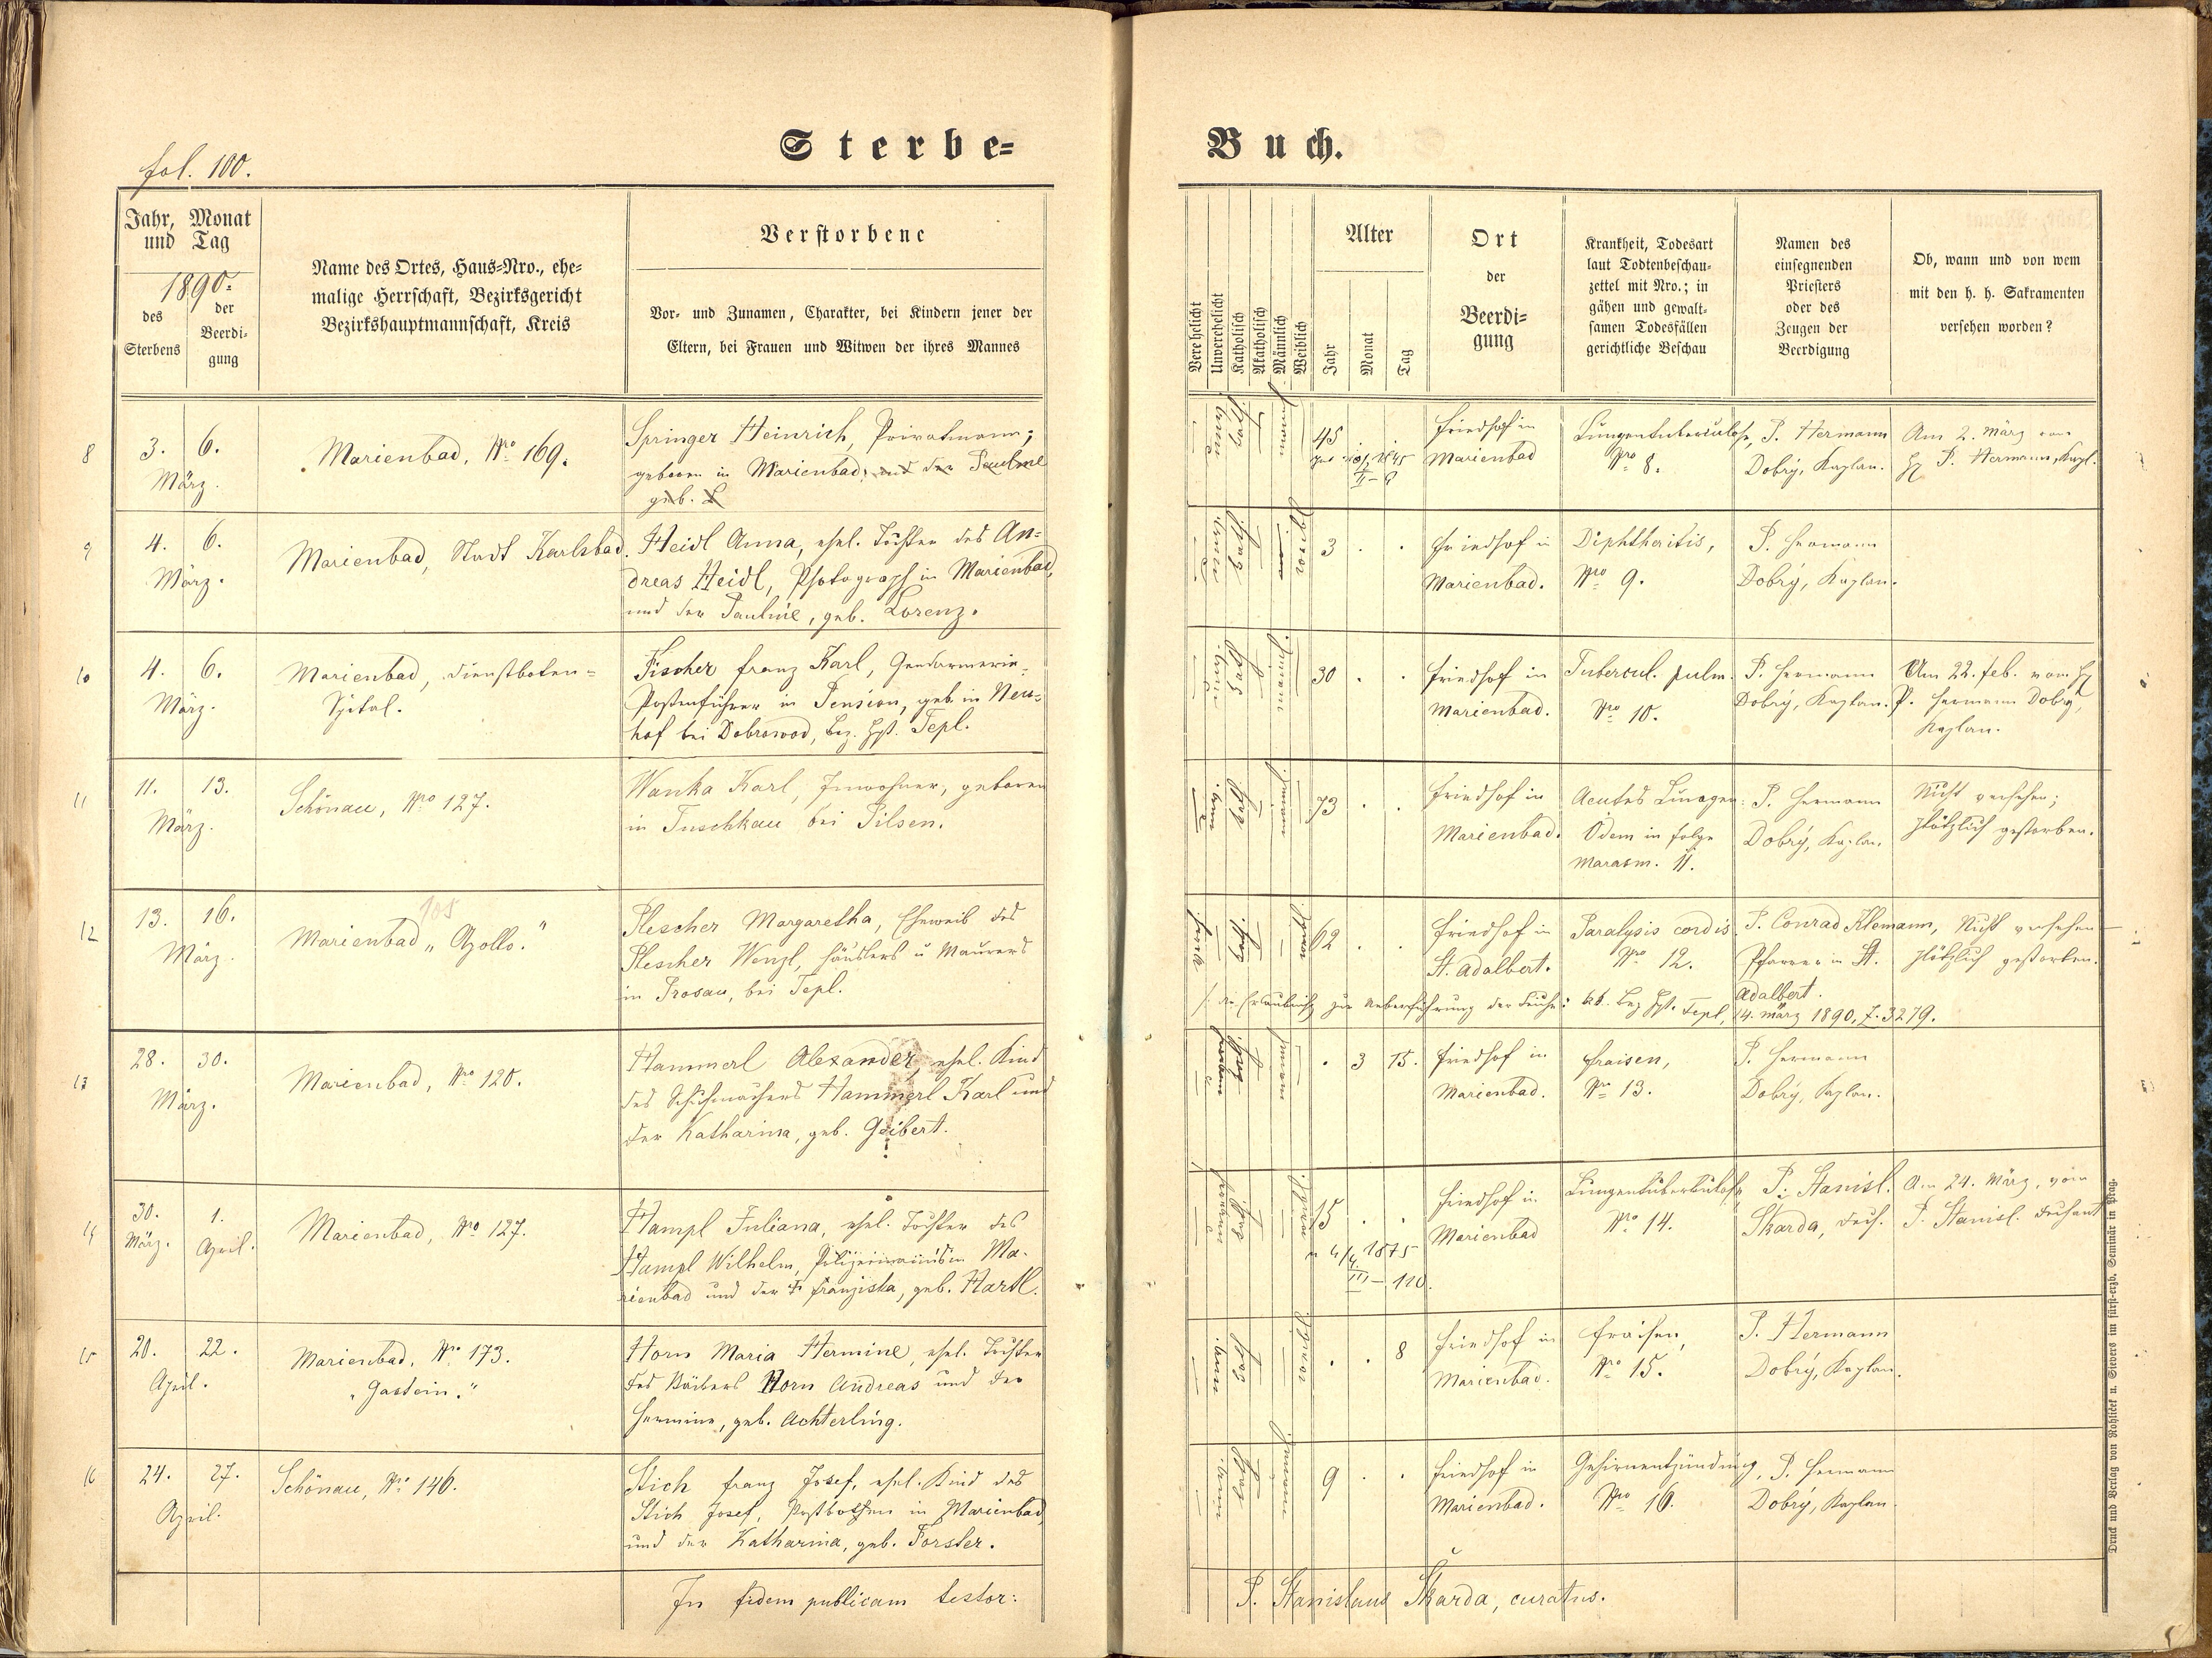 fol. 100.
Sterbe-
Buch.
Jahr, Monat
und Tag
1890.
des
Sterbens
der
Beerdi-
gung
Name des Ortes, Haus-Nro., ehe-
malige Herrschaft, Bezirksgericht
Bezirkshauptmannschaft, Kreis
Verstorbene
Vor- und Zunamen, Charakter, bei Kindern jener der
Eltern, bei Frauen und Witwen der ihres Mannes
Verehelicht
Unverehelicht
Katholisch
Akatholisch
Männlich
Weiblich
Alter
Jahr
Monat
Tag
Ort
der
Beerdi-
gung
Krankheit, Todesart
laut Todtenbeschau-
zettel mit Nro.; in
gähen und gewalt-
samen Todesfällen
gerichtliche Beschau
Namen des
einsegnenden
Priesters
oder des
Zeugen der
Beerdigung
Ob, wann und von wem
mit den h. h. Sakramenten
versehen worden?
8
3. 6.
März.
Marienbad, Nro 169.
Springer Heinrich, Privatmann;
geboren in Marienbad; und der Pauline
geb. L
45
Friedhof in
Marienbad
Lungentuberculose,
Nro 8.
P. Hermann
Dobrý, Kaplan.
Am 2. März von
H P. Hermann, Kapl.
9
4. 6.
März.
Marienbad, Stadt Karlsbad.
Heidl Anna, ehel. Tochter des An-
dreas Heidl, Photograph in Marienbad,
und der Pauline, geb. Lorenz.
3 . .
Friedhof in
Marienbad.
Diphtheritis,
Nro 9.
P. Hermann
Dobrý, Kaplan.
10
4. 6.
März.
Marienbad, Dienstboten-
Spital.
Fischer Franz Karl, Gendarmerie-
Postenführer in Pension, geb. in Neu-
hof bei Dobrowod, Bez. Hpt. Tepl.
30 . .
Friedhof in
Marienbad.
Tubercul. pulm.
Nro 10.
P. Hermann
Dobrý, Kaplan.
Am 22. Feb. vom H
P. Hermann Dobrý,
Kaplan.
11
11. 13.
März.
Schönau, Nro 127.
Wanka Karl, Inwohner, geboren
in Tuschkau bei Pilsen.
73 . .
Friedhof in
Marienbad.
Acutes Lungen-
Ödem in Folge
Marasm. 11.
P. Hermann
Dobrý, Kaplan.
Nicht versehen;
plötzlich gestorben.
12
13. 16.
März.
105
Marienbad "Apollo."
Plescher Margaretha, Eheweib des
Plescher Wenzl, Häuslers u Maurers
in Prosau, bei Tepl.
62 . .
Friedhof in
St. Adalbert.
Paralysis cordis
Nro 12.
P. Conrad Klemann,
Pfarrer in St.
Adalbert.
Nicht versehen
plötzlich gestorben.
/: die Erlaubniß zur Ueberführung der Leiche: kk. Bez Hpt. Tepl, 14. März 1890, Z. 3279.
13
28. 30.
März.
Marienbad, Nro 120.
Hammerl Alexander ehel. Kind
des Schuhmachers Hammerl Karl und
der Katharina, geb. Geibert.
. 3 15.
Friedhof in
Marienbad.
Fraisen,
Nro 13.
P. Hermann
Dobrý, Kaplan.
14
30. 1.
März. April.
Marienbad, Nro 127.
Hampl Juliana, ehel. Tochter des
Hampl Wilhelm, Polizeimann in Ma-
rienbad und der F Franziska, geb. Hartl.
15 . .
Friedhof in
Marienbad
Lungentuberkulose
Nro 14.
P. Stanisl.
Škarda, Dech.
Am 24. März, vom
P. Stanisl. Dechant
15
20. 22.
April.
Marienbad, Nro 173.
"Gastein."
Horn Maria Hermine, ehel. Tochter
des Bäckers Horn Andreas und der
Hermine, geb. Achterling.
. . 8
Friedhof in
Marienbad.
Fraisen,
Nro 15.
P. Hermann
Dobrý, Kaplan.
16
24. 27.
April.
Schönau, Nro 146.
Stich Franz Josef, ehel. Kind des
Stich Josef, Postbothen in Marienbad,
und der Katharina, geb. Forster.
9 . .
Friedhof in
Marienbad.
Gehirnentzündung,
Nro 16.
P. Hermann
Dobrý, Kaplan.
In fidem publicam testor:
P. Stanislaus Škarda, curatus.
Druck und Verlag von Rohlíček u. Sievers im fürst-erzb. Seminär in Prag.